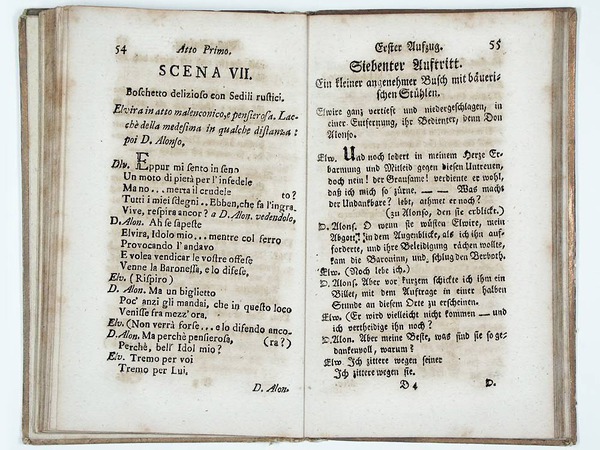 54 Atto Primo.
SCENA VII.
Boschetto delizioso con Sedili rustici.
Elvira in atto malenconico, e pensierosa. Lac-
chè della medesima in qualche distanza:
poi D. Alonso.
Elv. Eppur mi sento in seno
Un moto di pierà per l'infedele
Ma no... merta il crudele to?
Tutti i miei sdegni.. Ebben, che fa l'ingra
Vive, respira ancor? a D. Alon. vedendolo,
D. Alon. Ah se sapeste
Elvira, Idolo mio... mentre col ferro
Provocando l'andavo
E volea vendicar le vostre offese
Venne la Baronessa, e lo difese,
Elv. (Rispiro)
D. Alon. Ma un biglietto
Poc' anzi gli mandai, che in questo loco
Venisse fra mezz'ora.
Elv. (Non verrà forse... e lo difendo anco-
D. Alon. Ma perchè pensierosa, (ra?)
Perchè, bell' Idol mio?
Elv. Tremo per voi
Tremo per Lui.
D. Alon.
Erster Aufzug. 55
Siebenter Auftritt.
Ein kleiner angenehmer Busch mit bäueri-
schen Stühlen.
Elwire ganz vertieft und niedergeschlagen, in
einer Entfernung, ihr Bedienter, denn Don
Alonso.
Elw. Und noch lodert in meinem Herze Er-
barmung und Mitleid gegen diesen Untreuen,
doch nein! der Grausame! verdiente er wohl,
daß ich mich so zürne. — — Was macht
der Undankbare? lebt, athmer er noch?
(zu Alonso, den sie erblickt.)
D. Alons. O wenn sie wüßten Elwire, mein
Abgott, in dem Augenblicke, als ich ihn auf-
forderte, und ihre Beleidigung rächen wollte,
kam die Baroninn, und schlug den Verboth.
Elw. (Noch lebe ich.)
D. Alons. Aber vor kurzem schickte ich ihm ein
Billet, mit dem Auftrage in einer halben
Stunde an diesem Orte zu erscheinen.
Elw. (Er wird vielleicht nicht kommen — und
ich vertheidige ihn noch?
D. Alon. Aber meine Beste, was sind sie so ge-
dankenvoll, warum?
Elw. Ich zittere wegen seiner
Ich zittere wegen sie.
D 4 D.